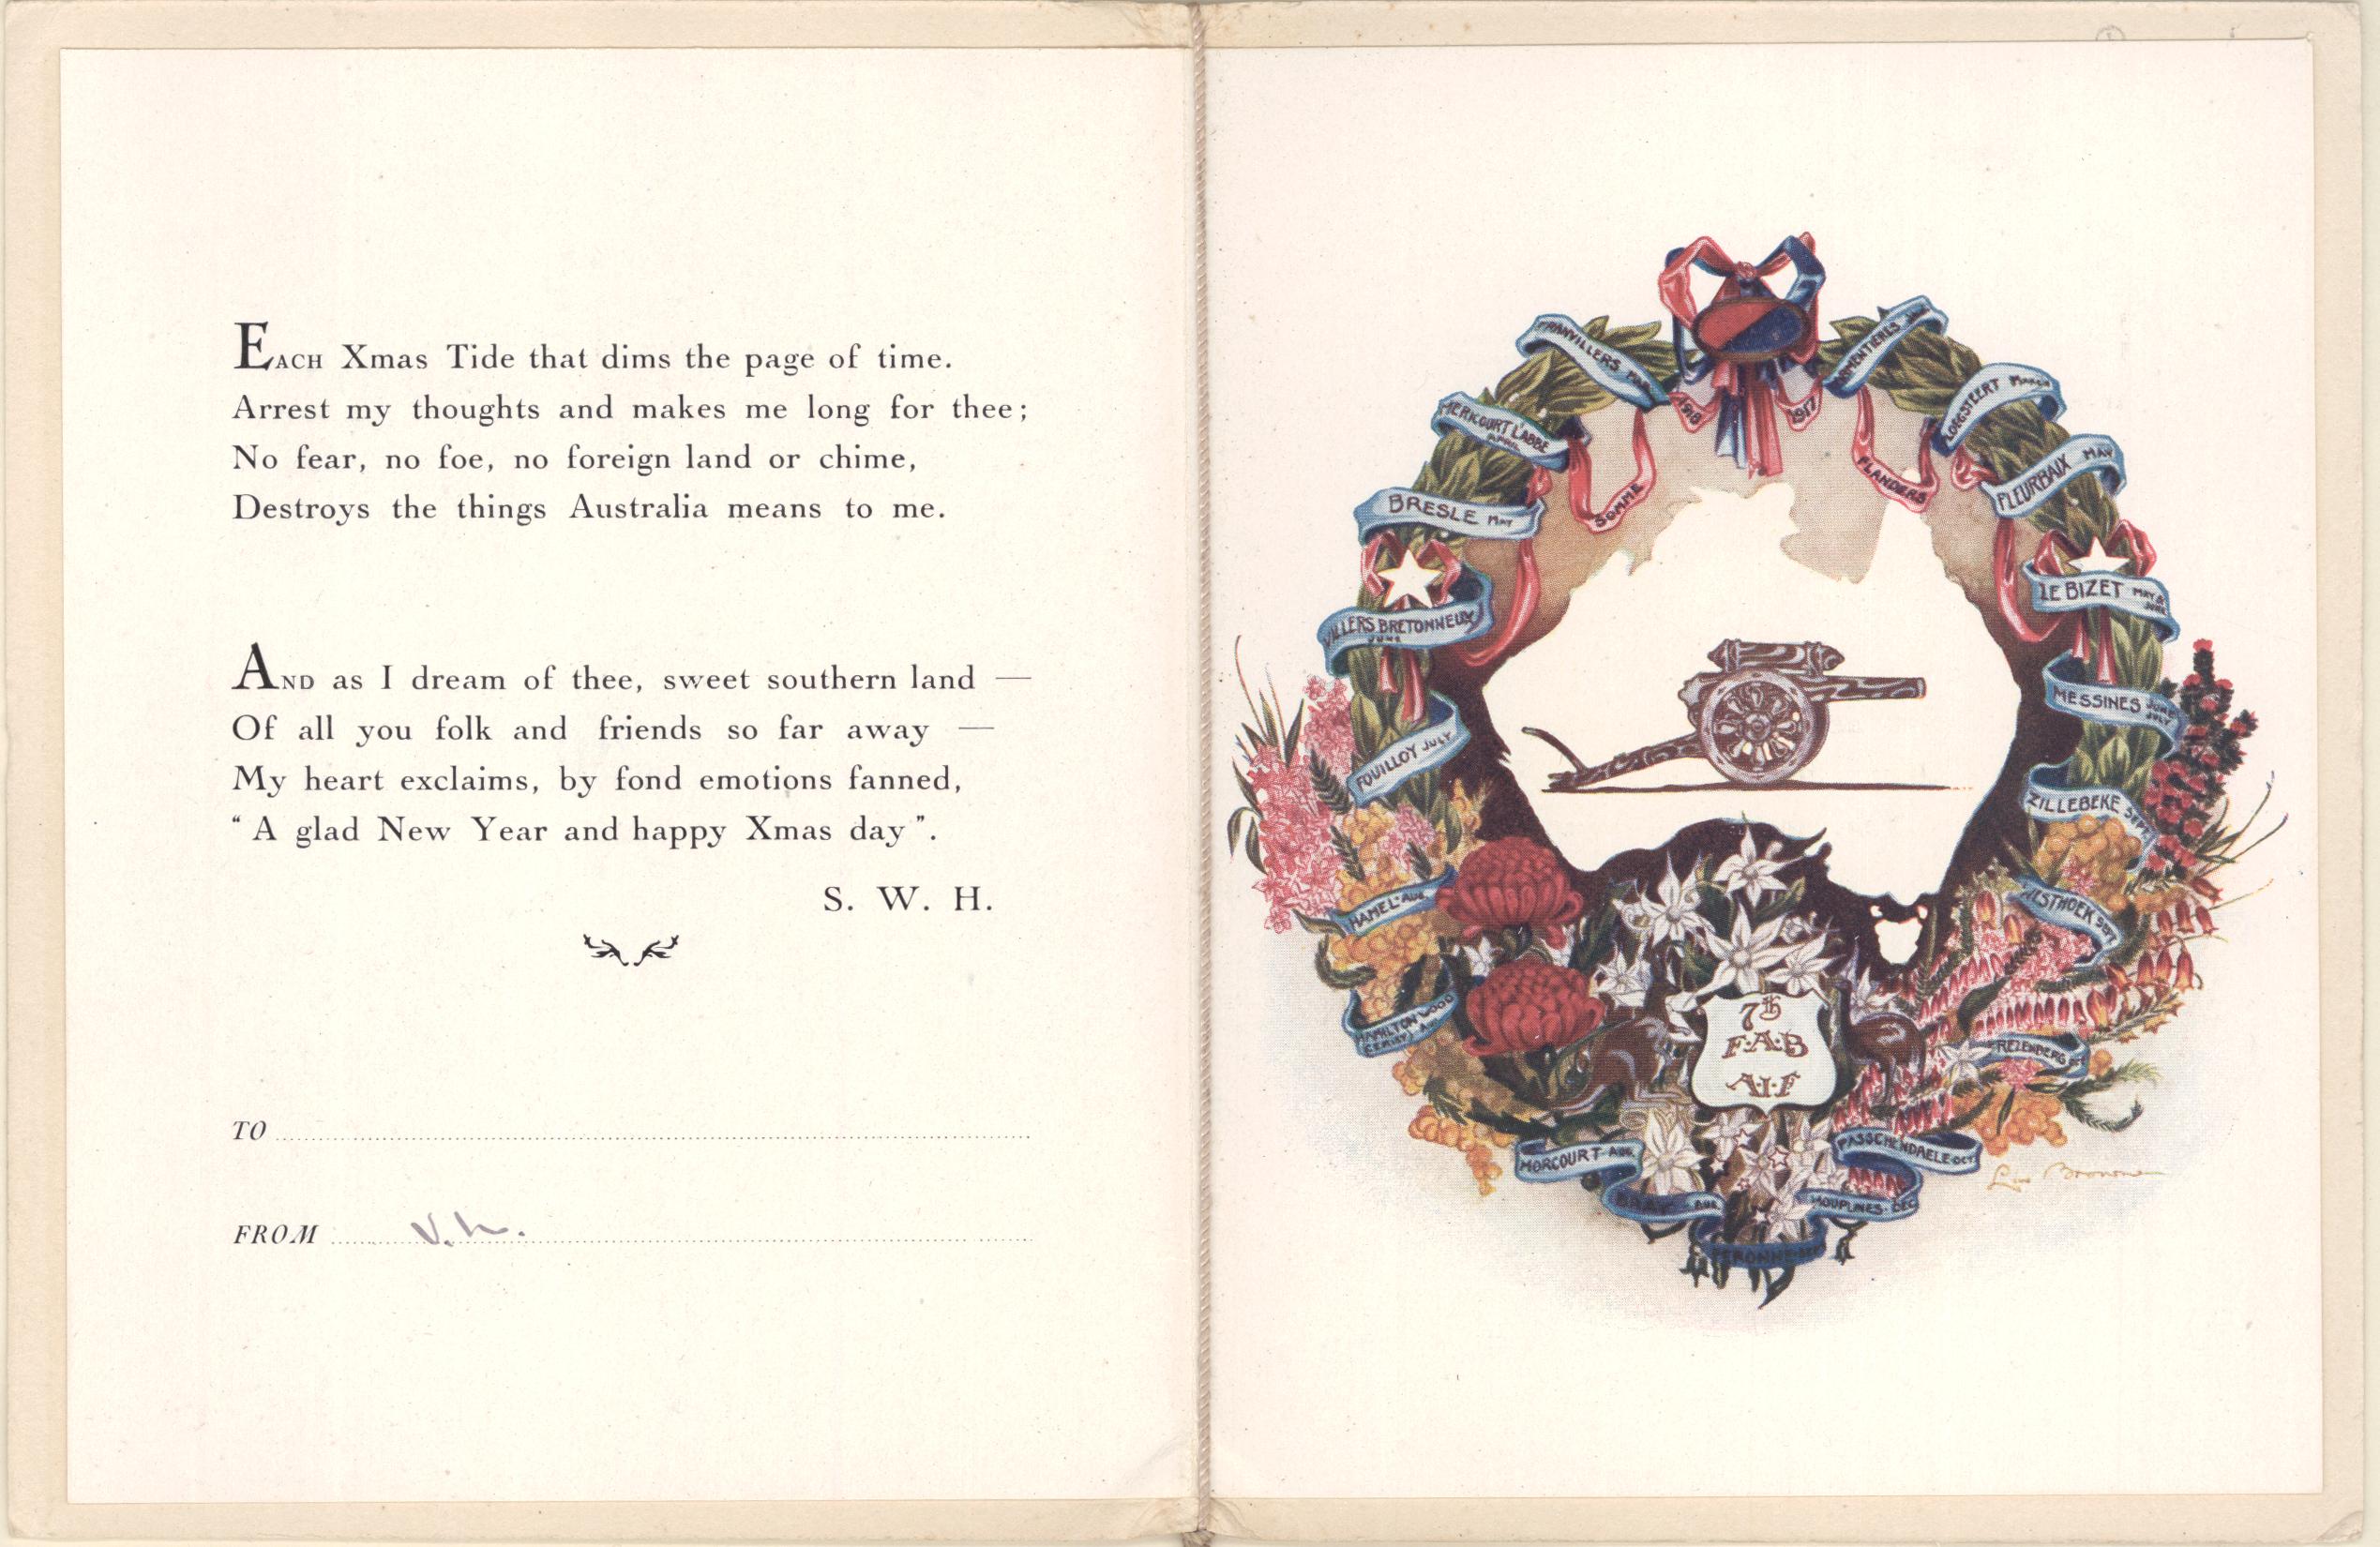 EACH Xmas Tide that dims the page of time.
Arrest my thoughts and makes me long for thee;
No fear, no foe, no foreign land or chime,
Destroys the things Australia means to me.
AND as I dream of thee, sweet southern land —
Of all you folk and friends so far away —
My heart exclaims, by fond emotions fanned,
“ A glad New Year and happy Xmas day ”.
S. W. H.
TO
FROM
FRANVILLERS
MERICOURT L'ABBE
APRIL
BRESLE MAY
VILLERS BRETONNEUX
JUNE
FOUILLOY JULY
HAMEL-AUG
HAMILTON WOOD
MORCOURT-AUG
BRAY-AUG
PERONNE
1918
SOMME
1917
FLANDERS
ARMENTIERES
PLOEGSTEERT MARCH
FLEURBAIX MAY
LE BIZET MAY &
JUNE
MESSINES JUNE
JULY
ZILLEBEKE SEPT
WESTHOEK SEPT
FREZENBERG OCT
PASSCHENDAELE-OCT
HOUPLINES-DEC
7th
F.A.B
A.I.F